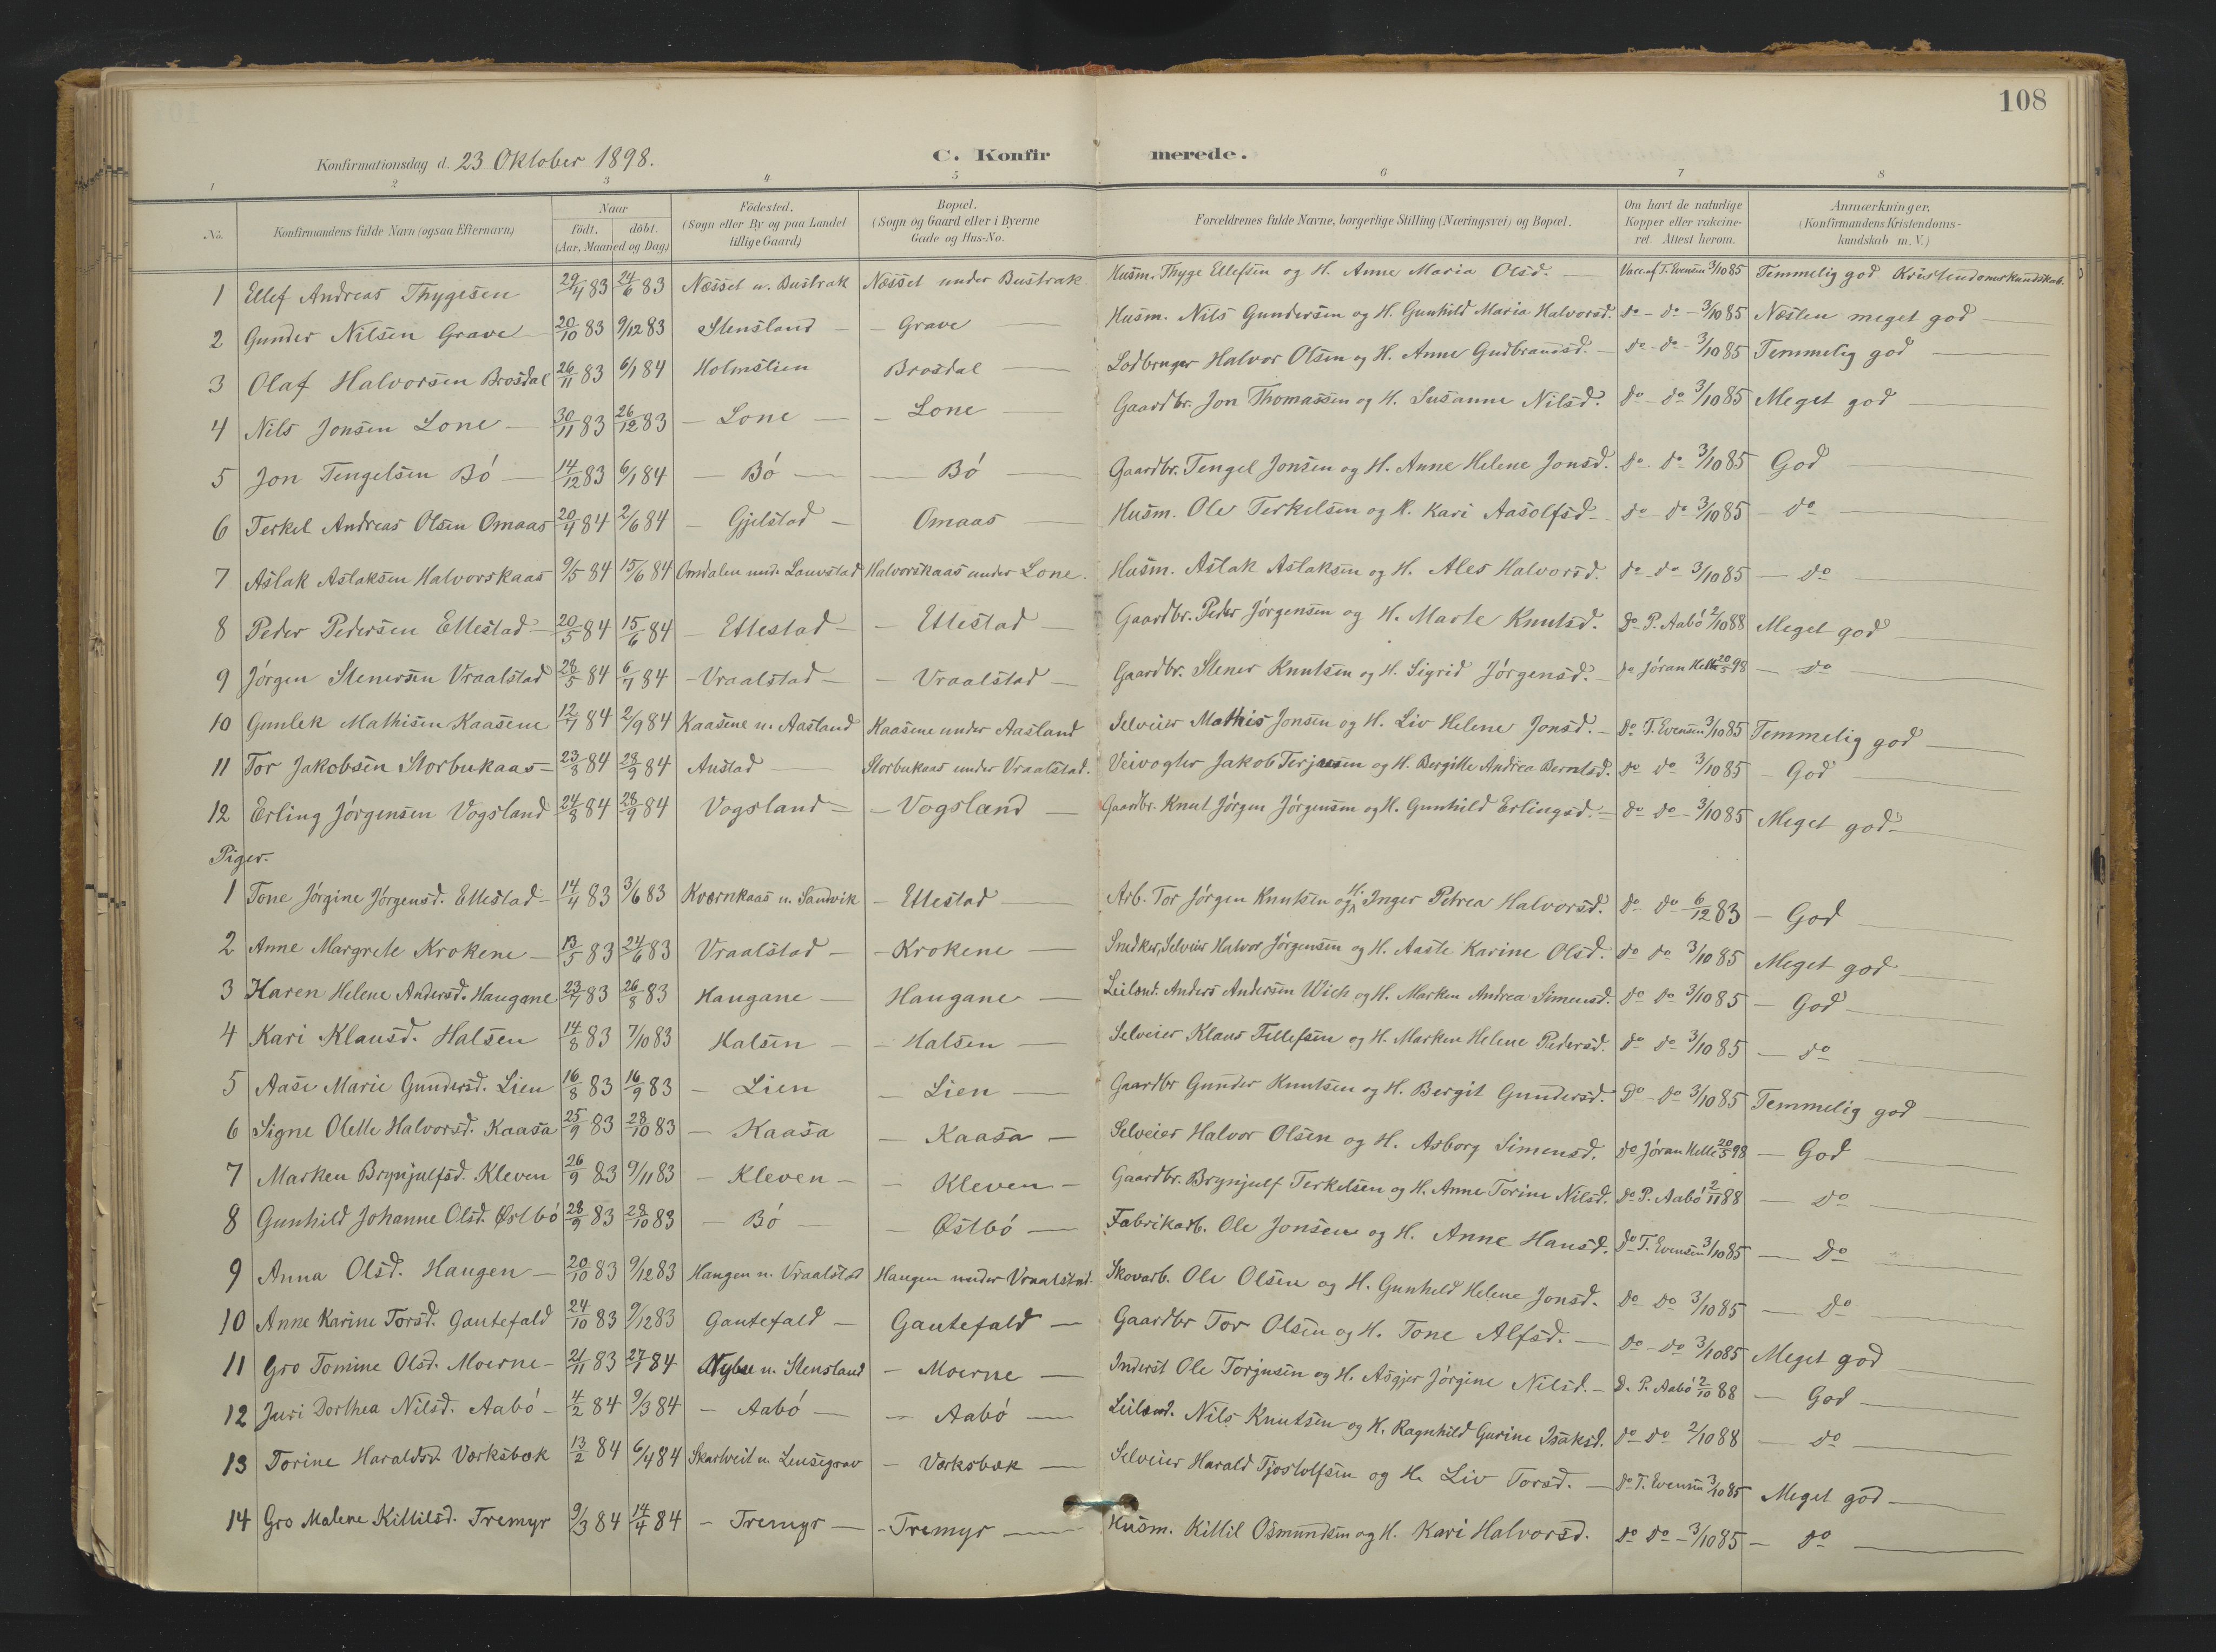 108
Konfirmationsdag d. 23 Oktober 1898. C. Konfirmerede.
1 2 3 4 5 6 7 8
No. Konfirmandens fulde Navn (ogsaa Efternavn) Naar født. døbt. (Aar, Maaned og Dag) Fødested. (Sogn eller By og paa Landet tillige Gaard) Bopæl. (Sogn og Gaard eller i Byerne Gade og Hus-No. Forældrenes fulde Navne, borgerlige Stilling (Næringsvei) og Bopæl. Om havt de naturlige Kopper eller vakcineret. Attest herom. Anmærkninger. (Konfirmandens Kristendomskundskab m. V.)
1 Ellef Andreas Thygesen 29/4 83 24/6 83 Næsset u. Bustrak Næsset under Bustrak Husm. Thyge Ellefsen og H. Anne Maria Olsd. Vacc. af T. Evensen 3/10 85 Temmelig god Kristendomskundskab.
2 Gunder Nilsen Grave 20/10 83 9/12 83 Stensland Grave Husm. Nils Gundersen og H. Gunhild Maria Halvorsd. do - do - 3/10 85 Næsten meget god
3 Olaf Halvorsen Brosdal 26/11 83 6/1 84 Holmstien Brosdal Lodbruger Halvor Olsen og H. Anne Gudbrandsd. do - do - 3/10 85 Temmelig god
4 Nils Jonsen Lone 30/11 83 26/12 83 Lone Lone Gaardbr. Jon Thomassen og H. Susanne Nilsd. do - do 3/10 85 Meget god
5 Jon Tengelsen Bó 14/12 83 6/1 84 Bó Bó Gaardbr. Tengel Jonsen og H. Anne Helene Jonsd. do do 3/10 85 God
6 Terkel Andreas Olsen Omaas 20/4 84 2/6 84 Gjelstad Omaas Husm. Ole Terkelsen og H. Kari Aasolfsd. do - do 3/10 85 do
7 Aslak Aslaksen Halvorskaas 9/5 84 15/6 84 Omdalen und. Lauvstad Halvorskaas under Lone. Husm. Aslak Aslaksen og H. Ales Halvorsd. do - do 3/10 85 do
8 Peder Pedersen Ettestad 20/5 84 15/6 84 Ettestad Ettestad Gaardbr. Peder Jórgensen og H. Marte Knutsd. Do P. Aabó 2/10 88 Meget god
9 Jórgen Stenersen Vraalstad 28/5 84 6/7 84 Vraalstad Vraalstad Gaardbr. Stener Knutsen og H. Sigrid Jórgensd. do Jóran Helle 20/5 98 do
10 Gunlek Mathisen Kaasene 12/7 84 2/9 84 Kaasene u. Aasland Kaasene under Aasland Selveier Mathis Jonsen og H. Liv Helene Jonsd. Do T. Evensen 3/10 85 Temmelig god
11 Tor Jakobsen Storbukaas 23/8 84 28/9 84 Austad Storbukaas under Vraalstad. Veivogter Jakob Terjesen og H. Bergitte Andrea Berntsd. do do 3/10 85 God
12 Erling Jórgensen Vogsland 24/8 84 28/9 84 Vogsland Vogsland Gaardbr. Knut Jórgen Jórgensen og H. Gunhild Erlingsd. do do - 3/10 85 Meget god
Piger.
1 Tone Jórgine Jórgensd. Ettestad 14/4 83 3/6 83 Kvernkaas u. Sandvik Ettestad Arb. Tor Jórgen Knutsen og H. Inger Petrea Halvorsd. do do 6/12 83 God
2 Anne Margrete Krokene 13/5 83 24/6 83 Vraalstad Krokene Snedker, Selveier Halvor Jórgensen og H. Aaste Karine Olsd. do do 3/10 85 Meget god
3 Karen Helene Andersd. Haugane 23/7 83 26/8 83 Haugane Haugane Leilend. Anders Andersen Wich og H. Marken Andrea Simensd. do do 3/10 85 God
4 Kari Klausd. Halsen 14/8 83 7/10 83 Halsen Halsen Selveier Klaus Tellefsen og H. Marken Helene Pedersd. do do 3/10 85 do
5 Aase Marie Gundersd. Lien 16/8 83 16/9 83 Lien Lien Gaardbr Gunder Knutsen og H. Bergit Gundersd. Do - do 3/10 85 Temmelig god
6 Signe Olette Halvorsd. Kaasa 25/9 83 28/10 83 Kaasa Kaasa Selveier Halvor Olsen og H. Asborg Simensd. do Jóran Helle 20/5 98 God
7 Marken Brynjulfsd. Kleven 26/9 83 9/11 83 Kleven Kleven Gaardbr. Brynjulf Terkelsen og H. Anne Torine Nilsd. do P. Aabó 2/11 88 do
8 Gunhild Johanne Olsd. Østbó 28/9 83 28/10 83 Bó Østbó Fabrikarb. Ole Jonsen og H. Anne Hansd. do T. Evensen 3/10 85 Do
9 Anna Olsd. Haugen 20/10 83 9/12 83 Haugen u. Vraalstad Haugen under Vraalstad. Skovarb. Ole Olsen og H. Gunhild Helene Jonsd. do do 3/10 85 Do
10 Anne Karine Torsd. Gautefald 24/10 83 9/12 83 Gautefald Gautefald Gaardbr Tor Olsen og H. Tone Alfsd. do - do 3/10 85 Meget god
11 Gro Tomine Olsd. Moerne 21/11 83 27/1 84 u. Stensland Moerne Inderst Ole Torjusen og H. Asgjer Jórgine Nilsd. D. P. Aabó 2/10 88 God
12 Juri Dorthea Nilsd. Aabó 4/2 84 9/3 84 Aabó Aabó Leilend. Nils Knutsen og H. Ragnhild Gurine Isaksd. do do 2/10 88 do
13 Torine Haraldsd. Værksbæk 13/2 84 6/4 84 Skartveit u. Lensegrav Værksbæk Selveier Harald Tjostolfsen og H. Liv Torsd. do T. Evensen 3/10 85 Meget god
14 Gro Malene Kittilsd. Tremyr 9/3 84 14/4 84 Tremyr Tremyr Husm. Kittil Osmundsen og H. Kari Halvorsd. do do - 3/10 85 do